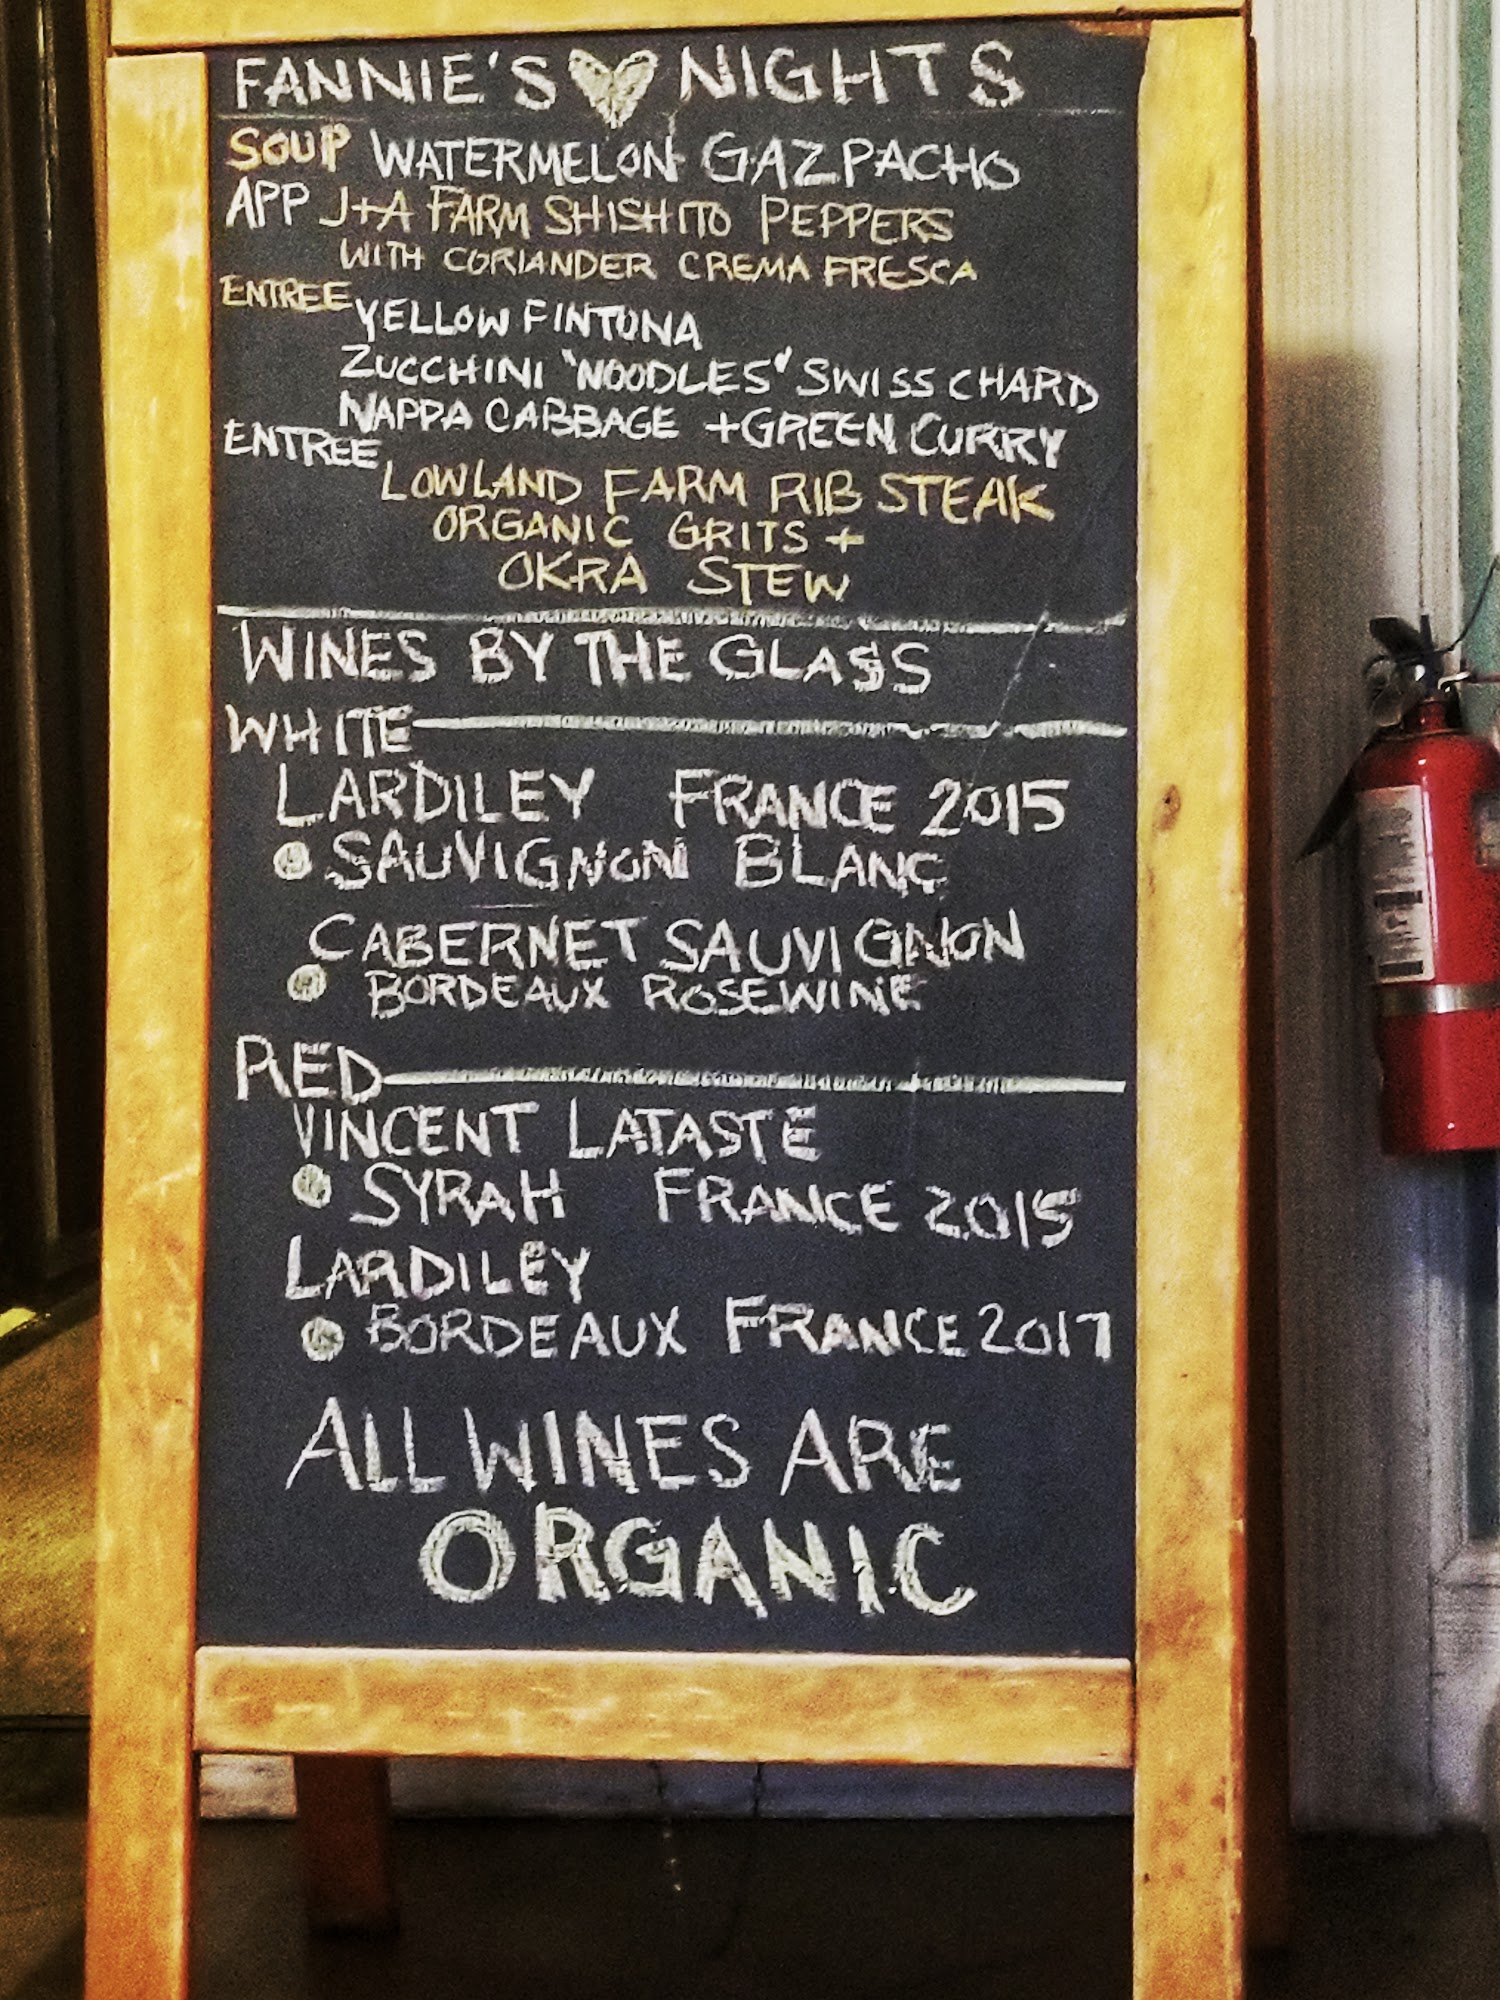 FANNIE'S NIGHTS
SOUP WATERMELON GAZPACHO
APP J+A FARM SHISHITO PEPPERS
WITH CORIANDER CREMA FRESCA
ENTREE YELLOW FIN TUNA
ZUCCHINI "NOODLES" SWISS CHARD
NAPPA CABBAGE + GREEN CURRY
ENTREE
LOWLAND FARM RIB STEAK
ORGANIC GRITS +
OKRA STEW
WINES BY THE GLASS
WHITE
LARDILEY FRANCE 2015
SAUVIGNON BLANC
CABERNET SAUVIGNON
BORDEAUX ROSE WINE
RED
VINCENT LATASTE
SYRAH FRANCE 2015
LARDILEY
BORDEAUX FRANCE 2017
ALL WINES ARE
ORGANIC